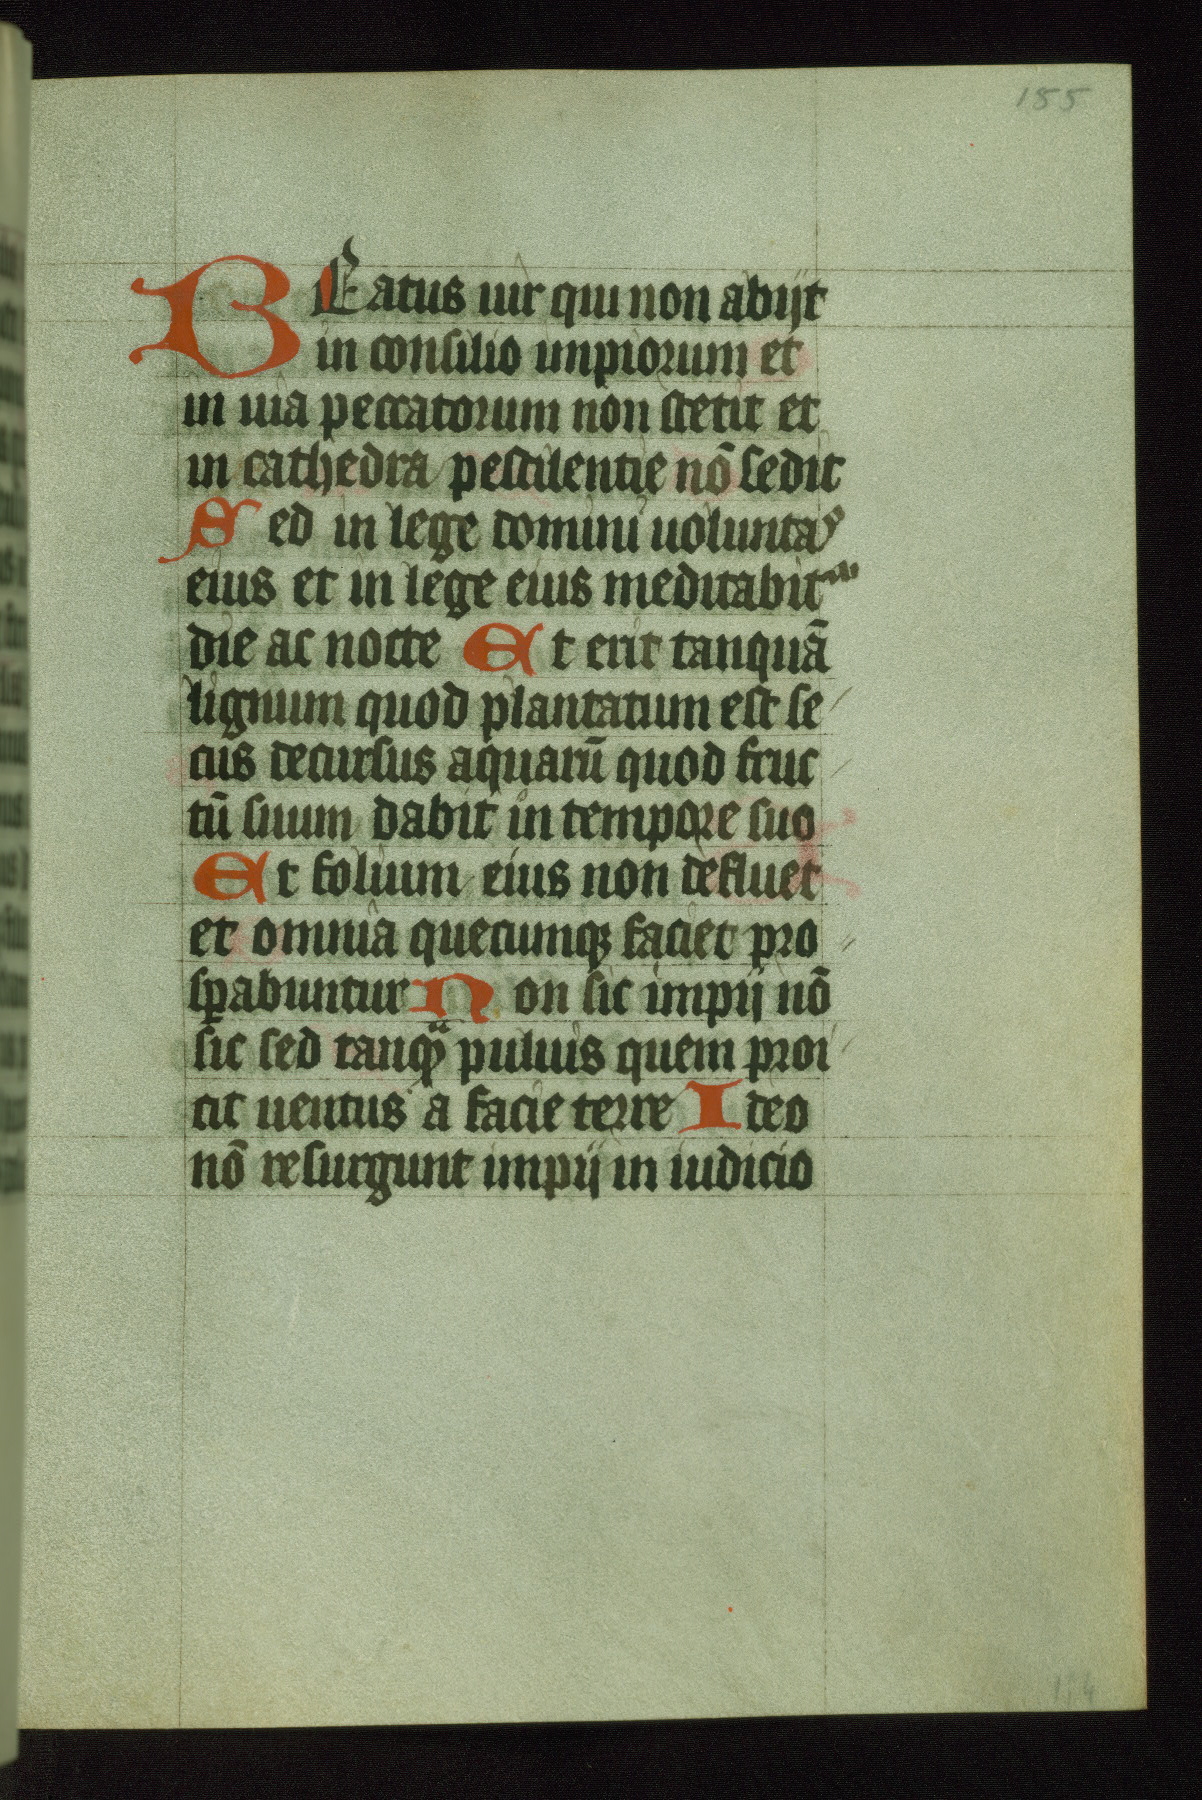 155
BEatus uir qui non abijt
in consilio impiorum et
in uia peccatorum non stetit et
in cathedra pestilentie nō sedit
Sed in lege domini uolunta⁹
eius et in lege eius meditabit᷑
die ac nocte Et erit tanquā
lignum quod plantatum est se
cus decursus aquarū quod fruc
tū suum dabit in tempore suo
Et folium eius non defluet
et omnia quecumqꝫ faciet pro
sꝑabuntur Non sic impij nō
sic sed tanqᷓ puluis quem proi
cit uentus a facie terre Ideo
nō resurgunt impij in iudicio